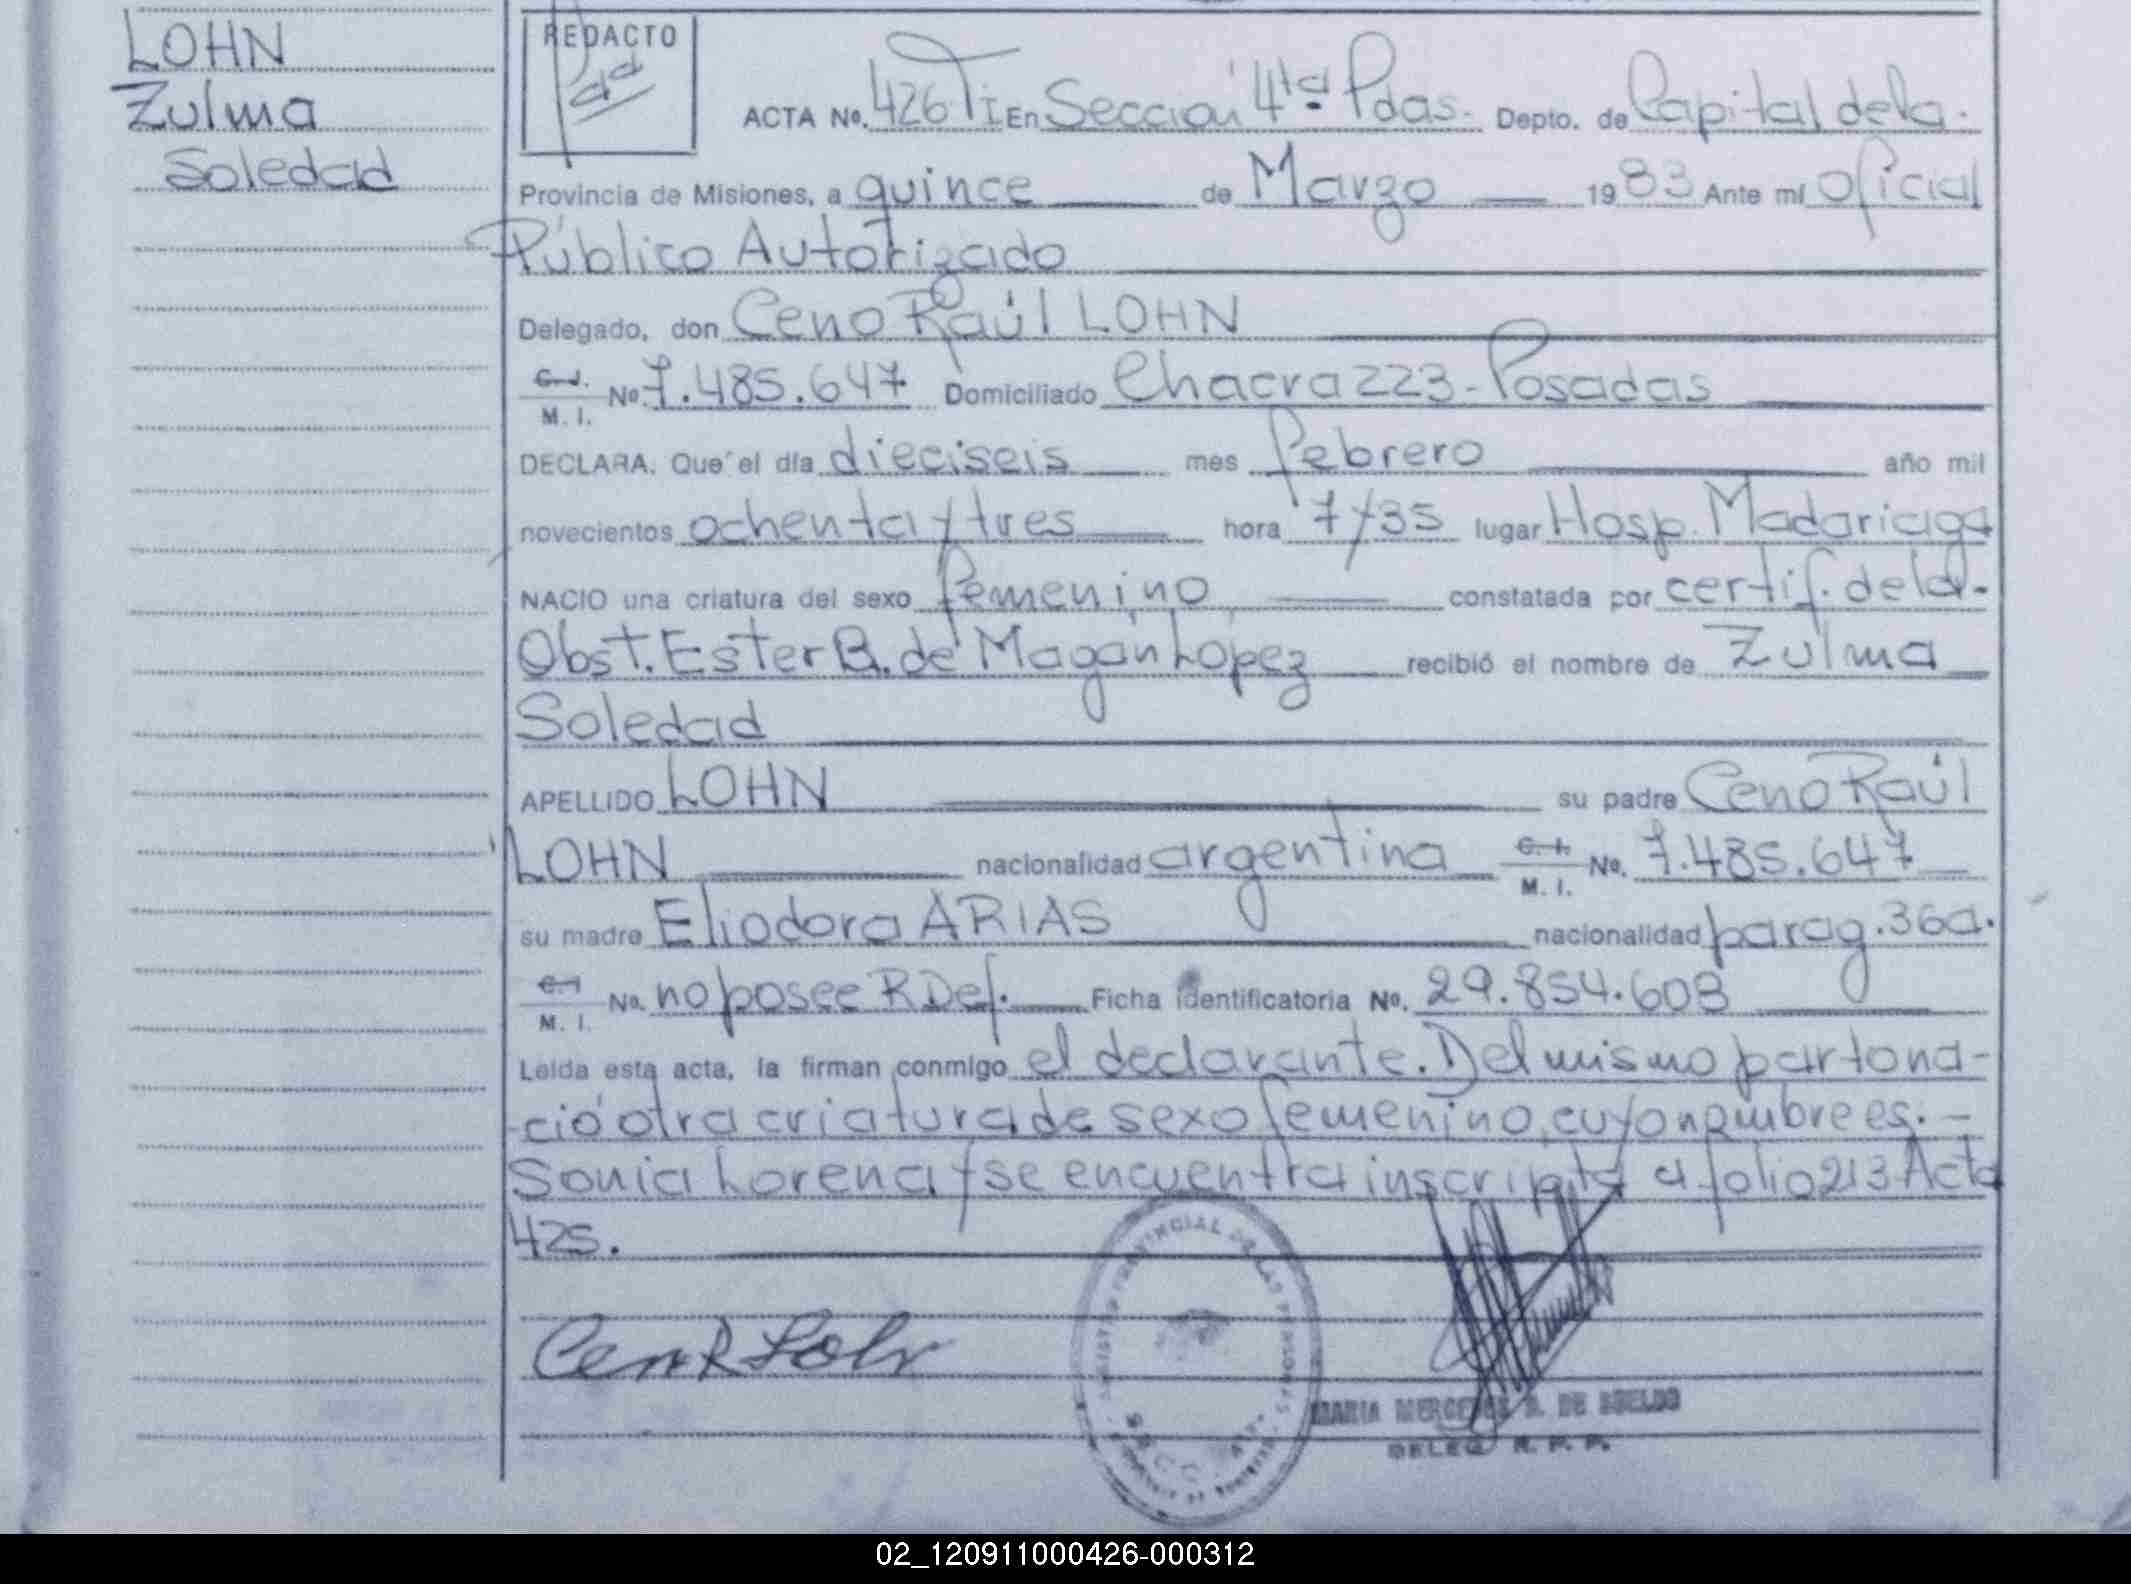 LOHN
Zulma
Soledad
REDACTO
ACTA No. 426 TI En Sección 4ta Pdas. Depto. de Capital de la.
Provincia de Misiones, a quince de Marzo 1983 Ante mí Oficial
Público Autorizado
Delegado, don Ceno Raúl LOHN
C.I. M. I. No. 7.485.647 Domiciliado Chacra 223 - Posadas
DECLARA. Que el día dieciseis mes febrero año mil
novecientos ochenta y tres hora 7 y 35 lugar Hosp. Madariaga
NACIO una criatura del sexo femenino constatada por certif. de la.
Obst. Ester B. de Magán López recibió el nombre de Zulma
Soledad
APELLIDO LOHN su padre Ceno Raúl
LOHN nacionalidad argentina C. I. M. I. No. 7.485.647
su madre Eliodora ARIAS nacionalidad parag. 36a.
C.I M. I. No. no posee R Def. Ficha identificatoria No. 29.854.608
Leída esta acta, la firman conmigo el declarante. Del mismo parto na-
-ció otra criatura de sexo femenino, cuyo nombre es. -
Sonia Lorena y se encuentra inscripta al folio 213 Acta
425.
Cen R Lohn
MARIA MERCEDES DE
DELEG R. P. P.
02_120911000426-000312